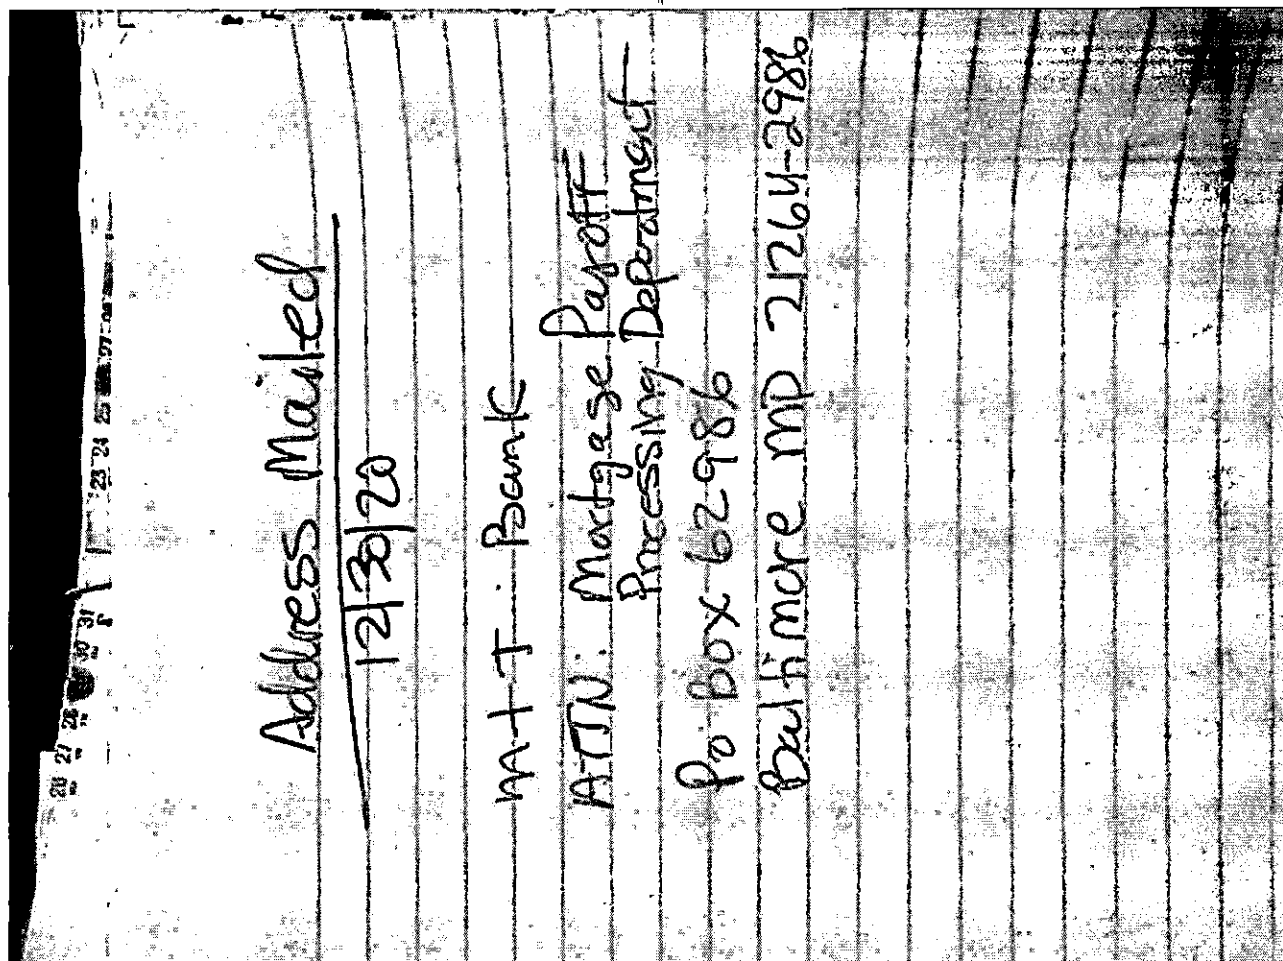 Address Mailed
12/30/20
M+T Bank
ATTN: Mortgage Payoff
Processing Department
Po Box 62986
Baltimore MD 21264-2986